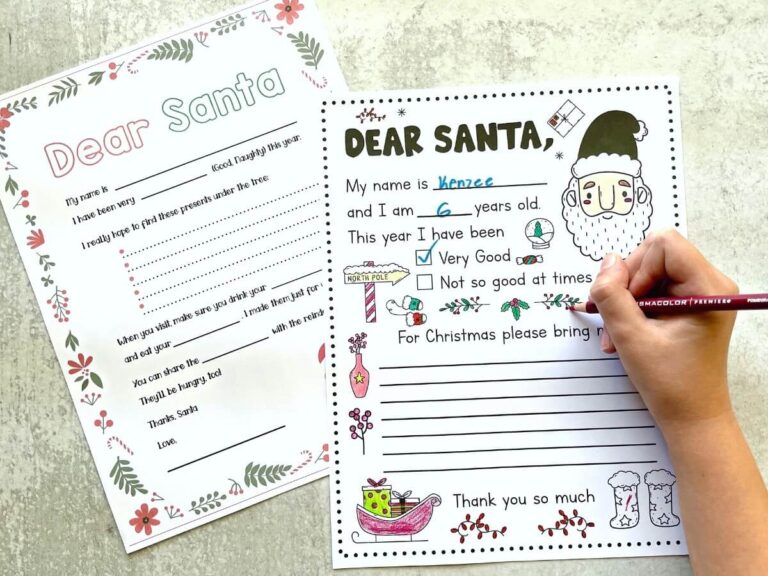 Dear Santa
My name is
(Good, Naughty) this year.
I have been very
I really hope to find these presents under the tree:
When you visit, make sure you drink your
and eat your . I made them just for
You can share the with the
They'll be hungry, too!
Thanks, Santa
Love,
DEAR SANTA,
My name is Kenzee
and I am 6 years old.
This year I have been
Very Good
Not so good at times
NORTH POLE
For Christmas please bring
Thank you so much
PRISMACOLOR PREMIER